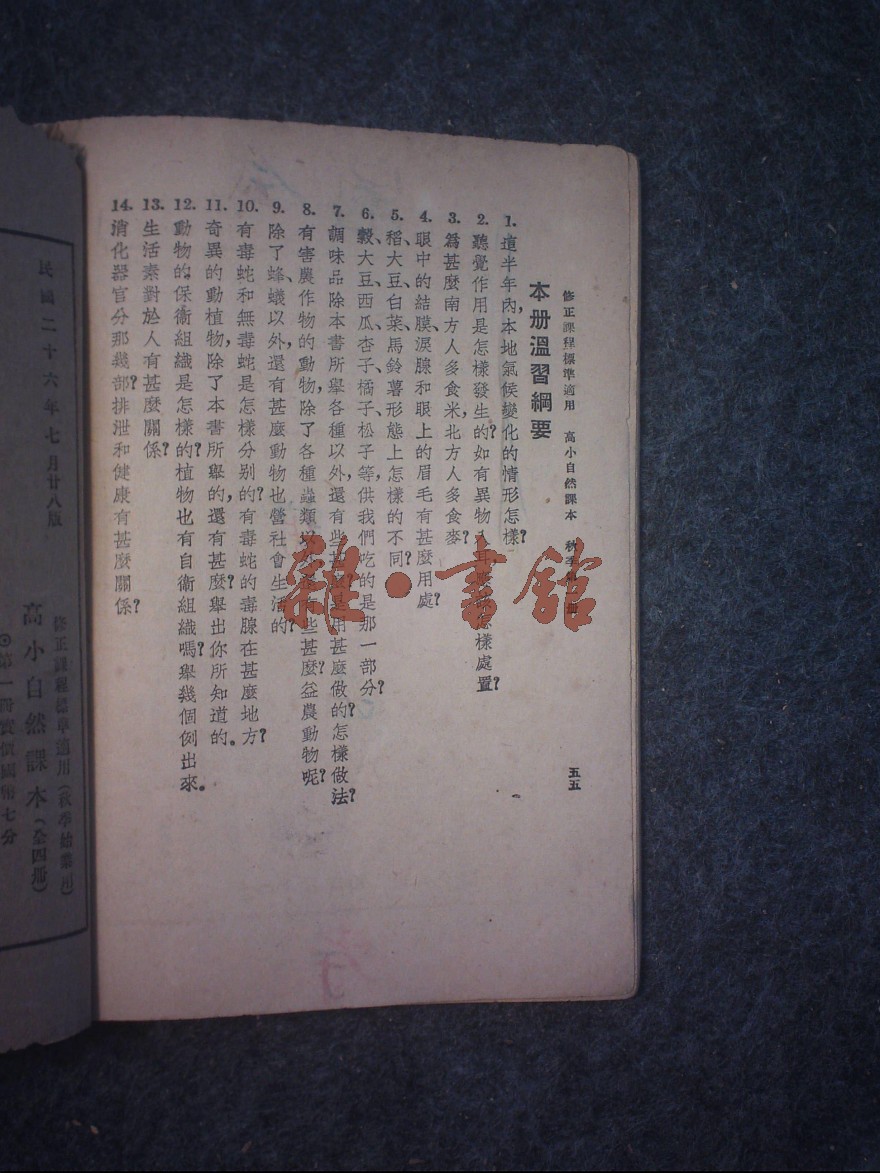 修正課程標準適用 高小自然課本 秋季 冊
五五
本册溫習綱要
1. 這半年內,本地氣候變化的情形怎樣?
2. 聽覺作用是怎樣發生的?如有異物入耳 怎樣處置?
3. 爲甚麽南方人多食米,北方人多食麥?
4. 眼中的結膜、淚腺和眼上的眉毛有甚麽用處?
5. 稻、大豆、白菜、馬鈴薯形態上怎樣的不同?
6. 穀、大豆、西瓜、杏子、橘子、松子等,供我們吃的是那一部分?
7. 調味品除本書所舉各種以外,還有些甚 是用甚麽做的?怎樣做法?
8. 有害農作物的動物,除了各種蟲類以外 有些甚麽?益農動物呢?
9. 除了蜂、蟻以外,還有甚麽動物也營社會生活的?
10. 有毒蛇和無毒蛇是怎樣分别的?有毒蛇的毒腺在甚麽地方?
11. 奇異的動植物,除了本書所舉的,還有甚麽?舉出你所知道的。
12. 動物的保衞組織是怎樣的?植物也有自衞組織嗎?舉幾個例出來。
13. 生活素對於人有甚麽關係?
14. 消化器官分那幾部?排泄和健康有甚麽關係?
修正課程標準適用(秋季始業用)
高小自然課本(全四册)
◎第一冊實價國幣七分
民國二十六年七月廿八版
雜·書館